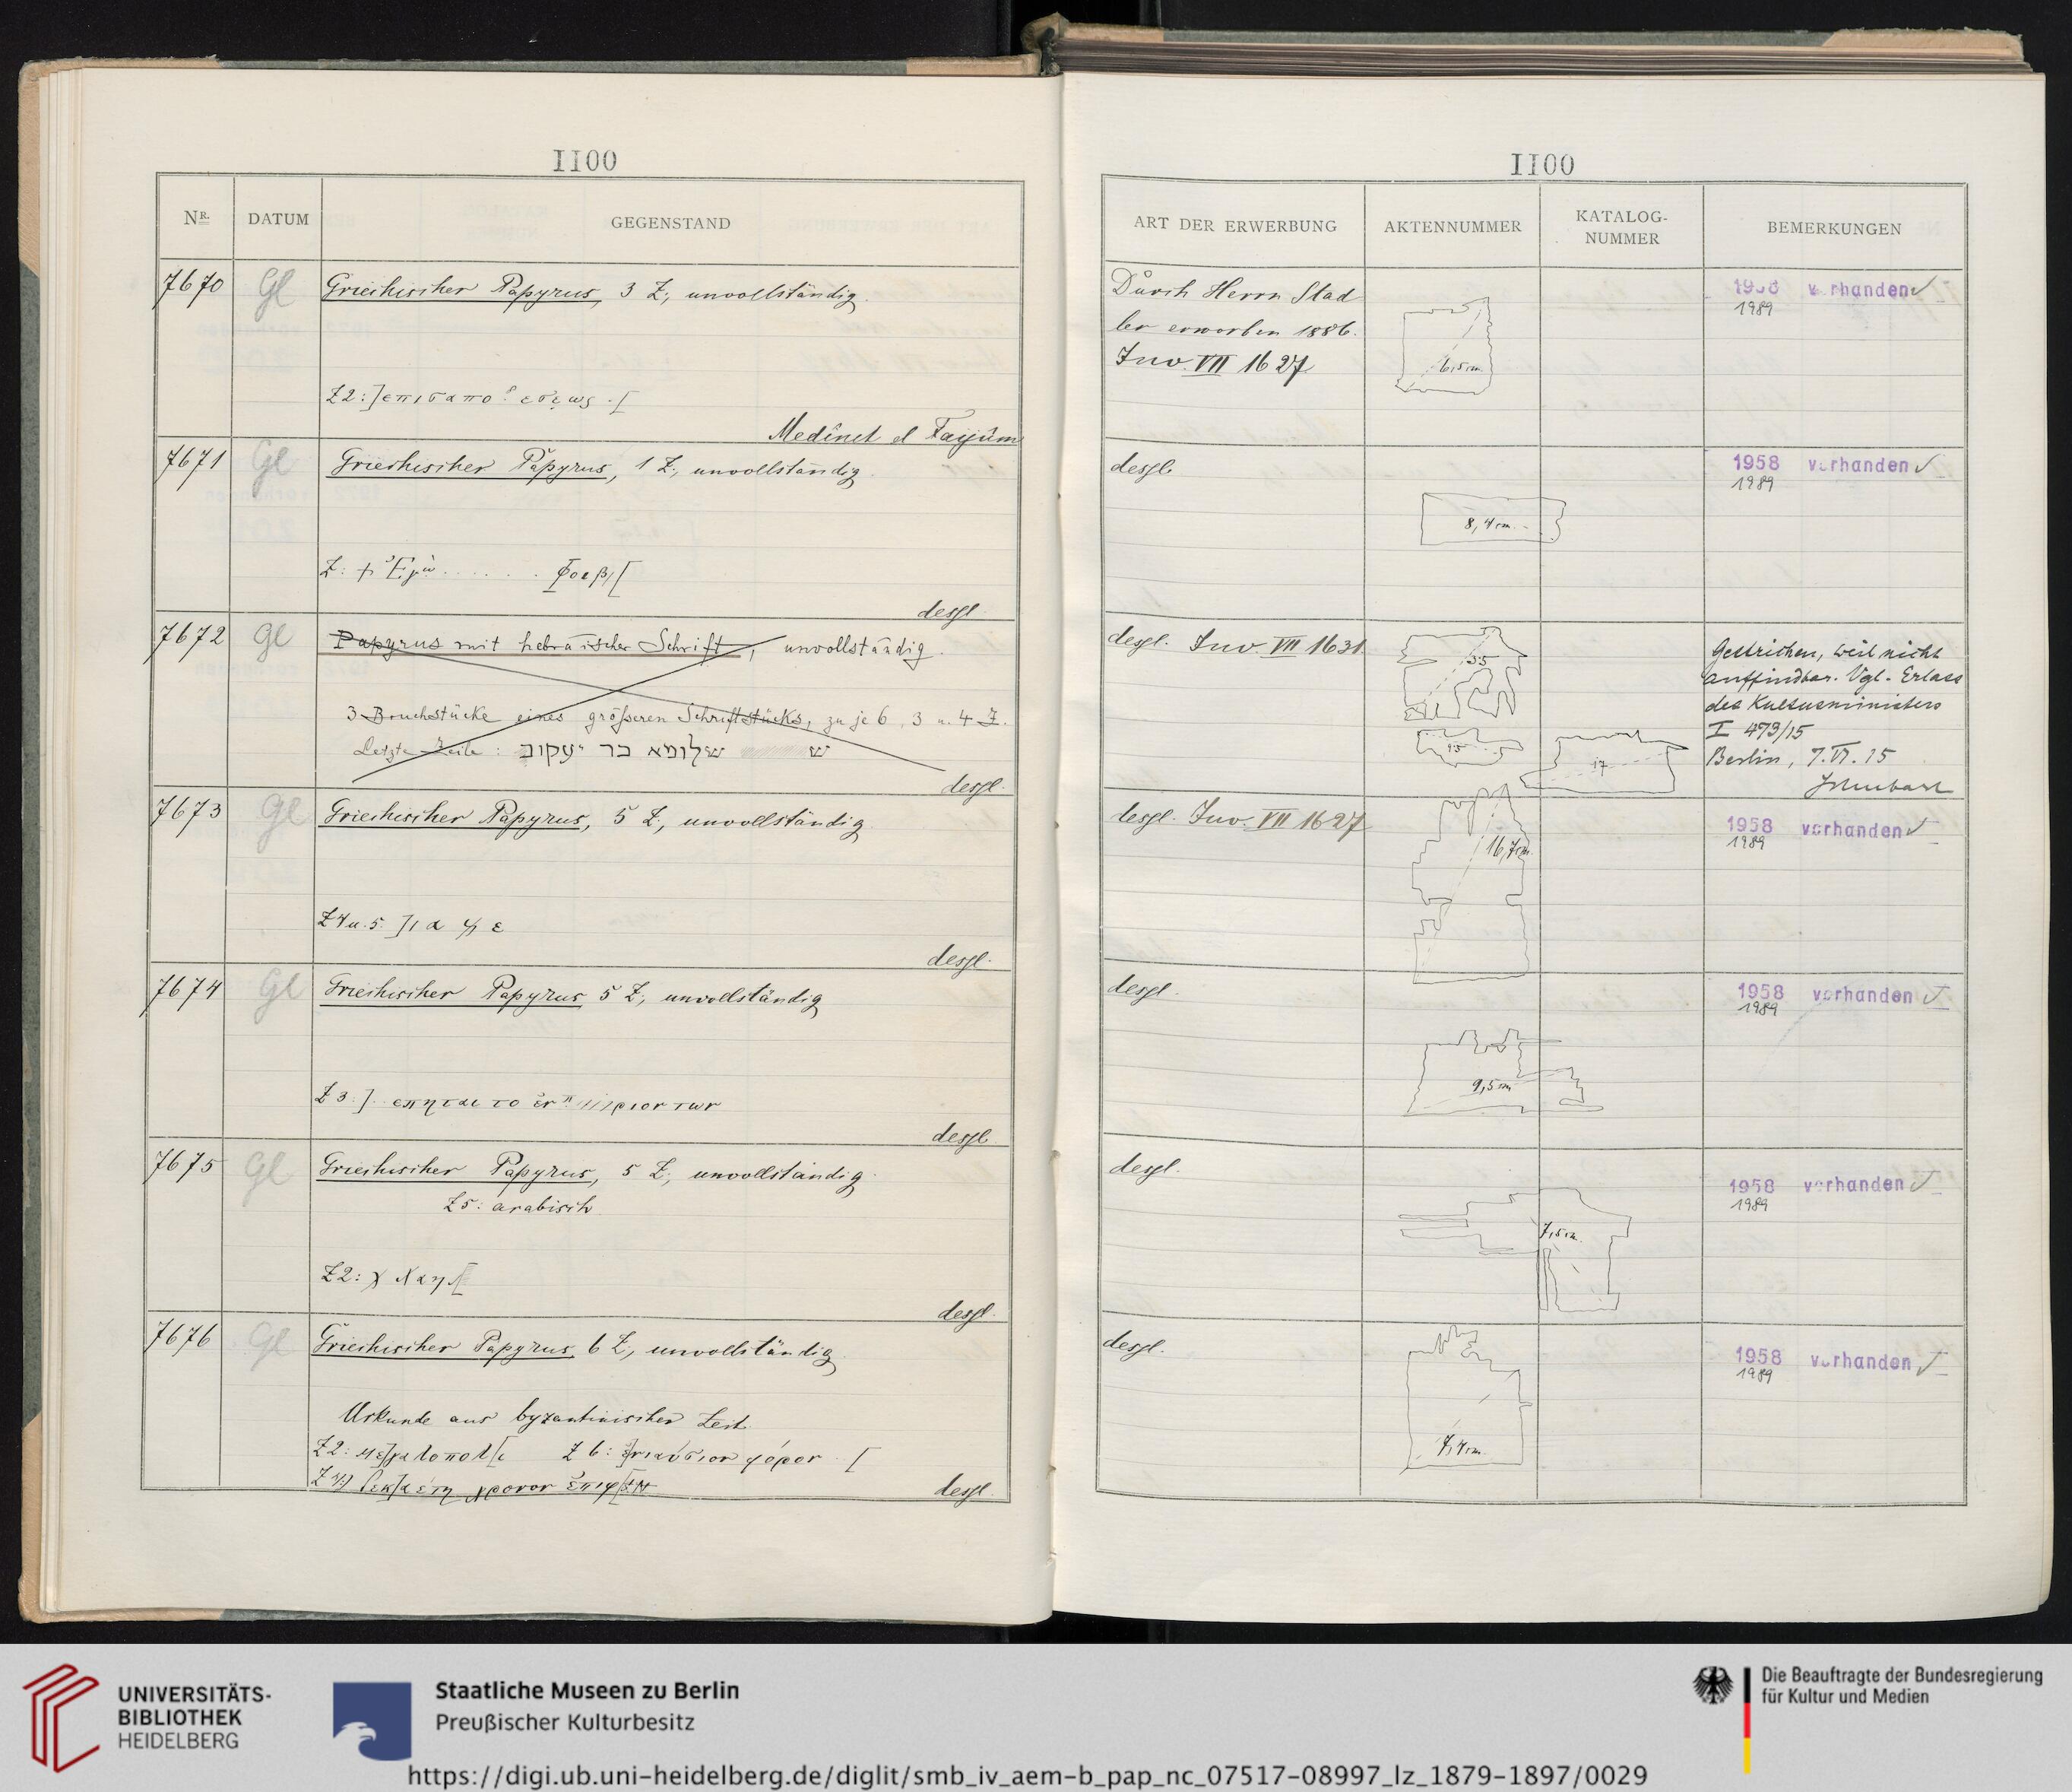 1100
Nr. DATUM GEGENSTAND
7670 Gl Griechischer Papyrus, 3 Z., unvollständig.
Medînet el Faijûm
7671 Gl Griechischer Papyrus, 1 Z., unvollständig.
desgl.
7672 Gl Papyrus mit hebräischer Schrift, unvollständig.
3 Bruchstücke eines größeren Schriftstücks, zu je 6, 3 u. 4 Z.
Letzte Zeile: ש שלומא בר יעקוב
desgl.
7673 Gl Griechischer Papyrus, 5 Z., unvollständig.
Z 4 u. 5.
desgl.
7674 Gl Griechischer Papyrus 5 Z., unvollständig
Z 3:
desgl.
7675 Gl Griechischer Papyrus, 5 Z., unvollständig.
Z 5: arabisch
Z 2:
desgl.
7676 Gl Griechischer Papyrus 6 Z., unvollständig.
Urkunde aus byzantinischer Zeit.
desgl.
1100
ART DER ERWERBUNG AKTENNUMMER KATALOG-NUMMER BEMERKUNGEN
Durch Herrn Stad
ler erworben 1886.
Inv. VII 1627
6,5 cm
vorhanden
1989
desgl.
8,4 cm.
1958 vorhanden
1989
desgl. Inv. VII 1631.
35
15
17
Gestrichen, weil nicht
auffindbar. Vgl. Erlass
des Kultusministers
I 473/15
Berlin, 7.VI.15
Schubart
desgl. Inv. VII 1627
16,7 cm.
1958 vorhanden
1989
desgl.
9,5 cm
1958 vorhanden
1989
desgl.
7,5 cm.
1958 vorhanden
1989
desgl.
7,4 cm.
1958 vorhanden
1989
UNIVERSITÄTS-
BIBLIOTHEK
HEIDELBERG
Staatliche Museen zu Berlin
Preußischer Kulturbesitz
Die Beauftragte der Bundesregierung
für Kultur und Medien
https://digi.ub.uni-heidelberg.de/diglit/smb_iv_aem-b_pap_nc_07517-08997_lz_1879-1897/0029